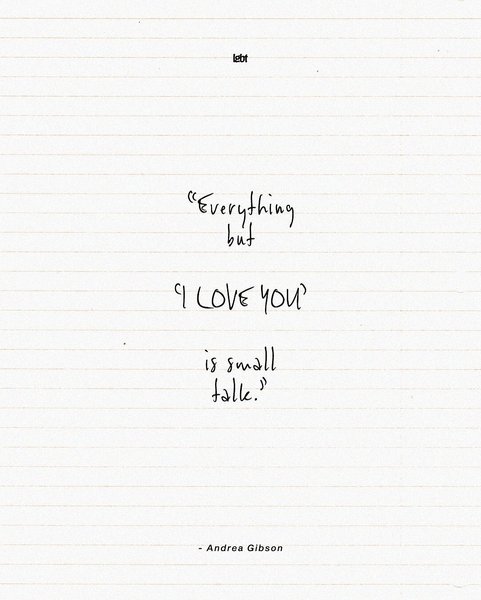 "Everything
but
'I LOVE YOU'
is small
talk."
- Andrea Gibson